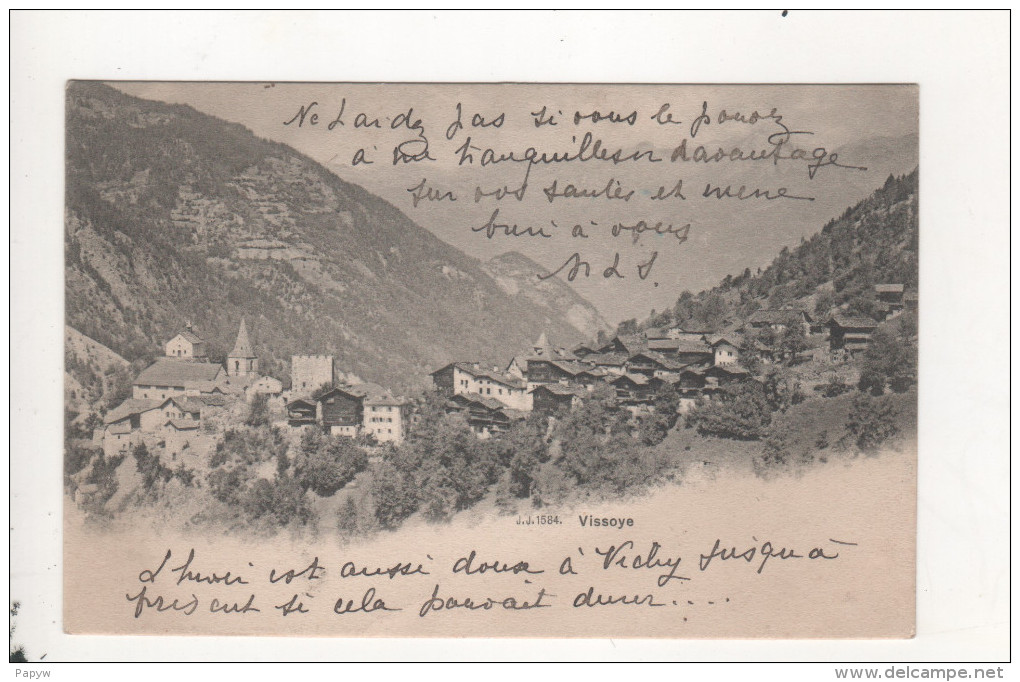 Ne tardez pas si vous le pouvez
à me tranquilliser davantage
sur vos santés et mene
buri à vous
J.J. 1584. Vissoye
L'hiver est aussi doux à Vichy jusqu'à
présent si cela pouvait durer....
Papyw
www.delcampe.net